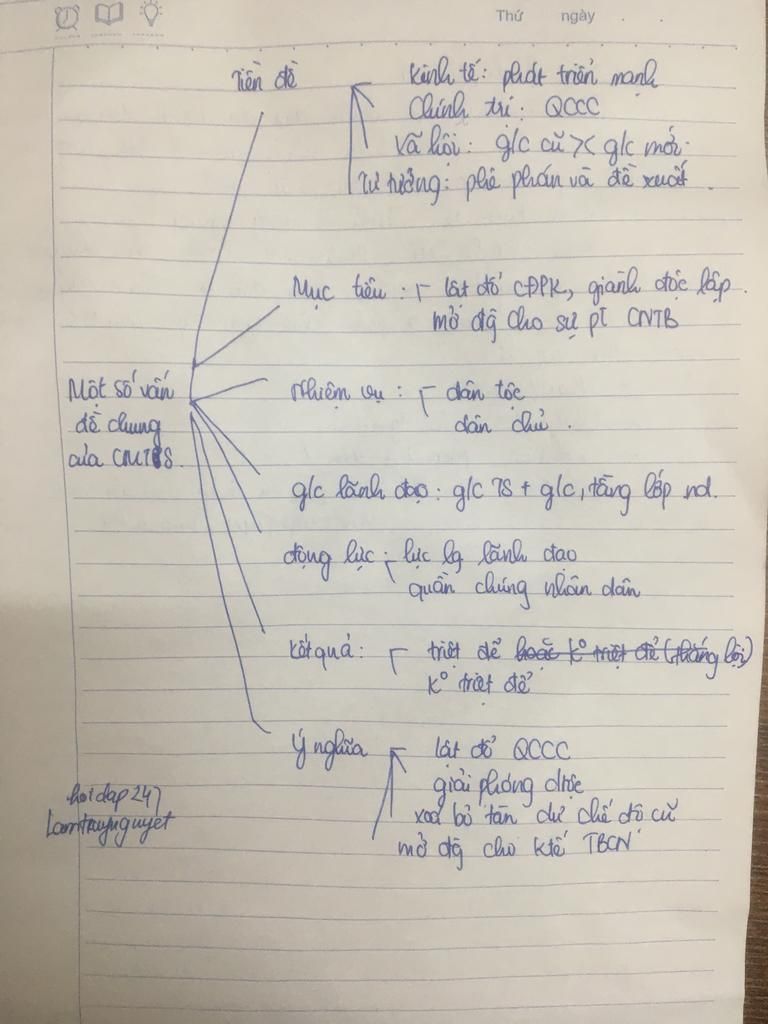 Thứ ngày . .
Tiền đề
Kinh tế: phát triển mạnh
Chính trị: QCCC
Xã hội: g/c cũ >< g/c mới.
Tư tưởng: phê phán và đề xuất.
Mục tiêu: lật đổ CĐPK, giành độc lập.
mở đg cho sự pt CNTB
Một số vấn
đề chung
của CMTS.
Nhiệm vụ: dân tộc
dân chủ.
g/c lãnh đạo: g/c TS + g/c, tầng lớp nd.
động lực: lực lg lãnh đạo
quần chúng nhân dân
Kết quả: triệt để hoặc k° triệt để (thắng lợi)
k° triệt để
Ý nghĩa
lật đổ QCCC
giải phóng dtộc
xoá bỏ tàn dư chế độ cũ
mở đg cho ktế TBCN
hoidap247
Lamtruynguyet